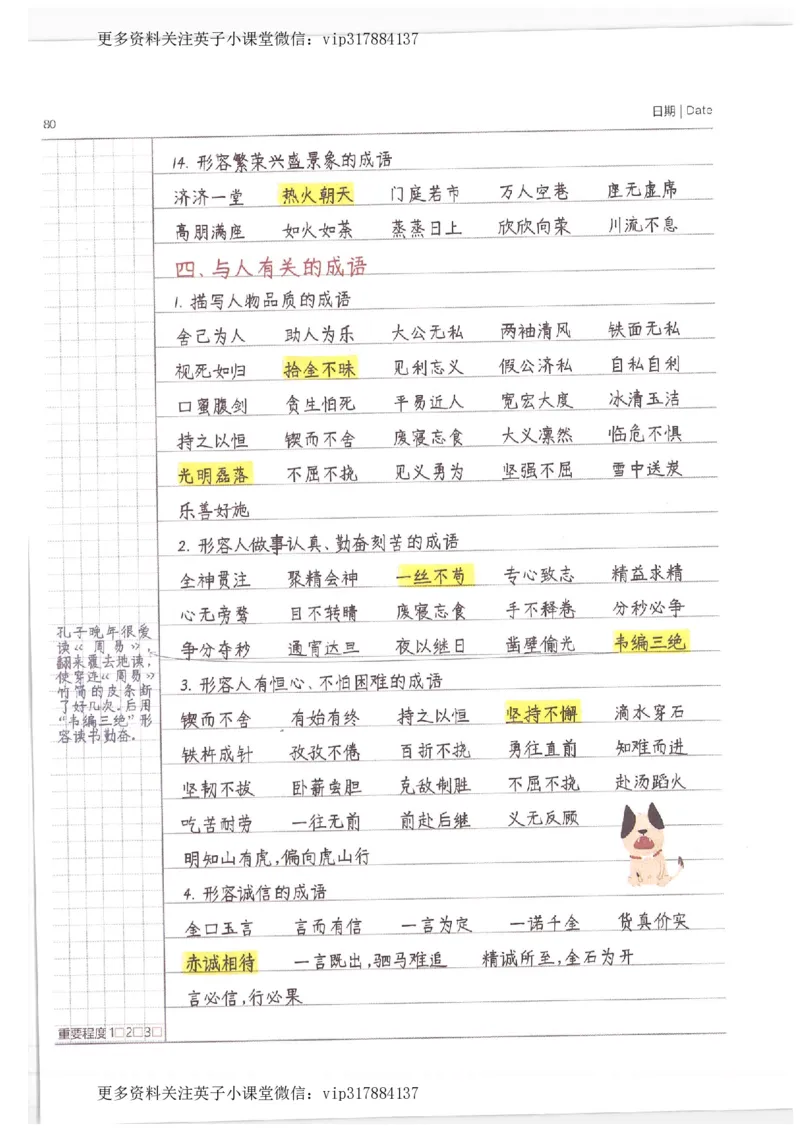 更多资料关注英子小课堂微信：vip317884137
80
日期 | Date
14. 形容繁荣兴盛景象的成语
济济一堂 热火朝天 门庭若市 万人空巷 座无虚席
高朋满座 如火如荼 蒸蒸日上 欣欣向荣 川流不息
四、与人有关的成语
1. 描写人物品质的成语
舍己为人 助人为乐 大公无私 两袖清风 铁面无私
视死如归 拾金不昧 见利忘义 假公济私 自私自利
口蜜腹剑 贪生怕死 平易近人 宽宏大度 冰清玉洁
持之以恒 锲而不舍 废寝忘食 大义凛然 临危不惧
光明磊落 不屈不挠 见义勇为 坚强不屈 雪中送炭
乐善好施
2. 形容人做事认真、勤奋刻苦的成语
全神贯注 聚精会神 一丝不苟 专心致志 精益求精
心无旁骛 目不转睛 废寝忘食 手不释卷 分秒必争
争分夺秒 通宵达旦 夜以继日 凿壁偷光 韦编三绝
孔子晚年很爱
读《周易》，
翻来覆去地读，
使穿连《周易》
竹简的皮条断
了好几次。后用
“韦编三绝”形
容读书勤奋。
3. 形容人有恒心、不怕困难的成语
锲而不舍 有始有终 持之以恒 坚持不懈 滴水穿石
铁杵成针 孜孜不倦 百折不挠 勇往直前 知难而进
坚韧不拔 卧薪尝胆 克敌制胜 不屈不挠 赴汤蹈火
吃苦耐劳 一往无前 前赴后继 义无反顾
明知山有虎，偏向虎山行
4. 形容诚信的成语
金口玉言 言而有信 一言为定 一诺千金 货真价实
赤诚相待 一言既出，驷马难追 精诚所至，金石为开
言必信，行必果
重要程度 1□2□3□
更多资料关注英子小课堂微信：vip317884137